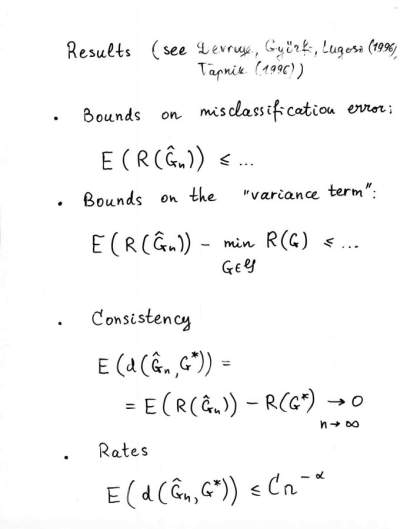 Results (see Devroye, Györfi, Lugosi (1996),
Vapnik (1996))
• Bounds on misclassification error:
E(R(Ĝₙ)) ≤ ...
• Bounds on the "variance term":
E(R(Ĝₙ)) - min R(G) ≤ ...
G∈𝒢
• Consistency
E(d(Ĝₙ, G*)) =
= E(R(Ĝₙ)) - R(G*) → 0
n→∞
• Rates
E(d(Ĝₙ, G*)) ≤ Cn^{-α}